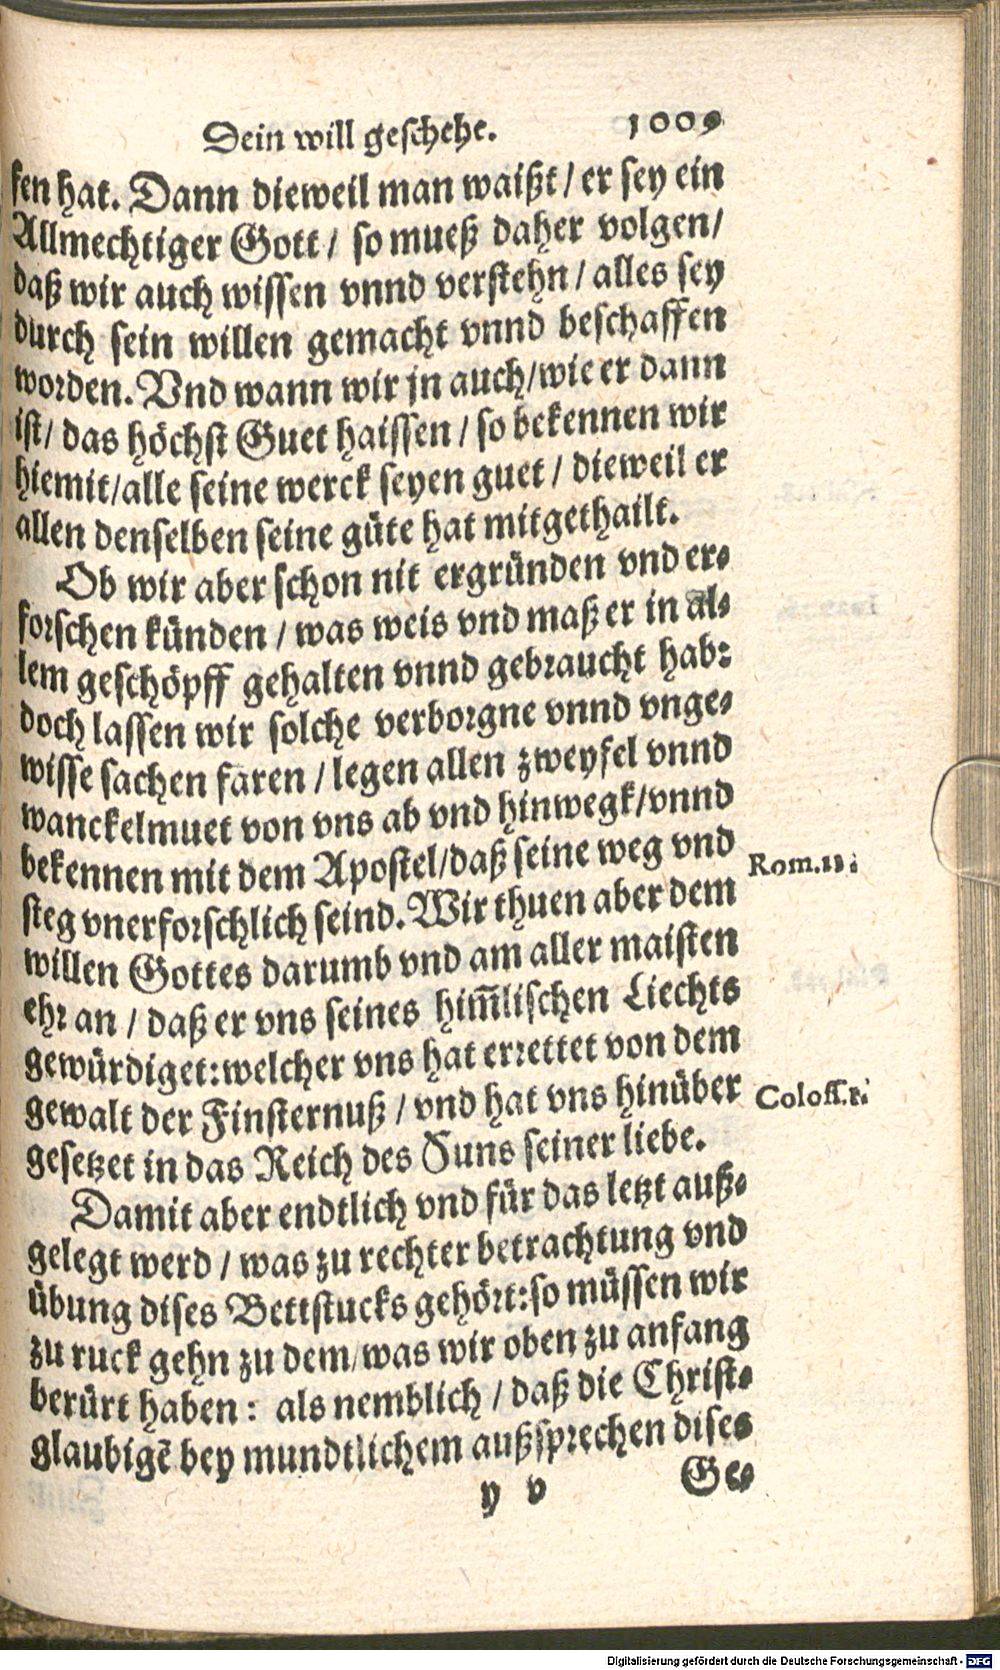 Dein will geschehe. 1009
sen hat. Dann dieweil man waißt / er sey ein
Allmechtiger Gott / so mueß daher volgen /
daß wir auch wissen vnnd verstehn / alles sey
durch sein willen gemacht vnnd beschaffen
worden. Vnd wann wir jn auch / wie er dann
ist / das höchst Guet haissen / so bekennen wir
hiemit / alle seine werck seyen guet / dieweil er
allen denselben seine güte hat mitgethailt.
Ob wir aber schon nit ergründen vnd er-
forschen künden / was weis vnd maß er in al-
lem geschöpff gehalten vnnd gebraucht hab:
doch lassen wir solche verborgne vnnd vnge-
wisse sachen faren / legen allen zweyfel vnnd
wanckelmuet von vns ab vnd hinwegk / vnnd
bekennen mit dem Apostel / daß seine weg vnd
Rom.11.
steg vnerforschlich seind. Wir thuen aber dem
willen Gottes darumb vnd am aller maisten
ehr an / daß er vns seines him̃lischen Liechts
gewürdiget: welcher vns hat errettet von dem
gewalt der Finsternuß / vnd hat vns hinüber
Coloss.1.
gesetzet in das Reich des Suns seiner liebe.
Damit aber endtlich vnd für das letzt auß-
gelegt werd / was zu rechter betrachtung vnd
übung dises Bettstucks gehört: so müssen wir
zu ruck gehn zu dem / was wir oben zu anfang
berürt haben: als nemblich / daß die Christ-
glaubigẽ bey mundtlichem außsprechen dises
y v Ge-
Digitalisierung gefördert durch die Deutsche Forschungsgemeinschaft - DFG